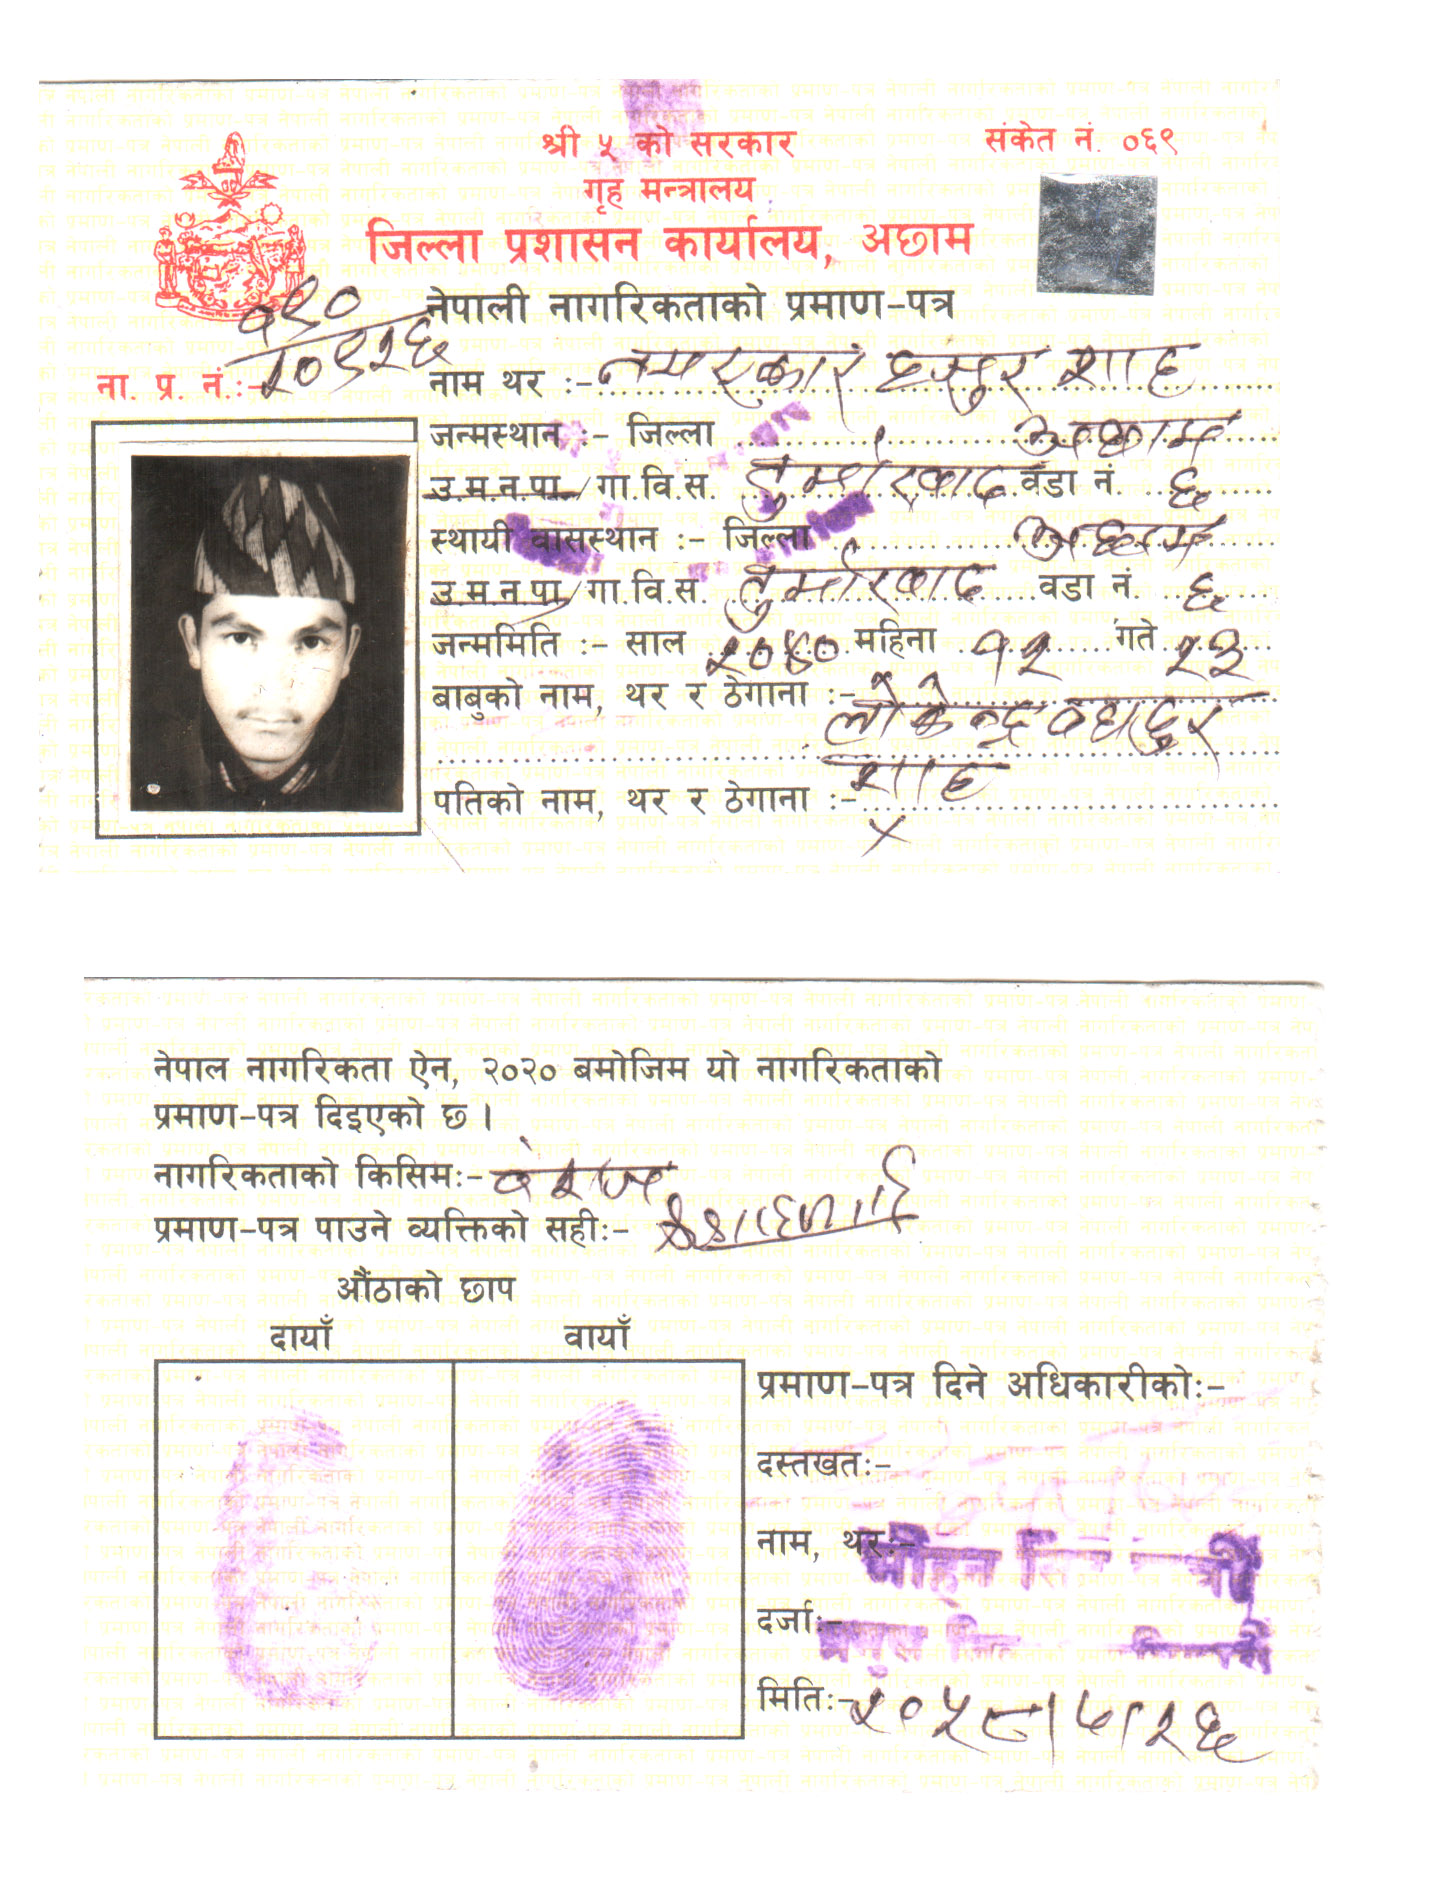 श्री ५ को सरकार
संकेत नं. ०६९
गृह मन्त्रालय
जिल्ला प्रशासन कार्यालय, अछाम
नेपाली नागरिकताको प्रमाण-पत्र
ना. प्र. नं.:-
नाम थर :- नमस्कार हजुर शाह
जन्मस्थान :- जिल्ला अछाम
उ.म.न.पा./गा.वि.स. वडा नं. ६
स्थायी वासस्थान :- जिल्ला अछाम
उ.म.न.पा./गा.वि.स. वडा नं. ६
जन्ममिति :- साल २०४० महिना १२ गते २३
बाबुको नाम, थर र ठेगाना :-
लोकेन्द्र बहादुर
शाह
पतिको नाम, थर र ठेगाना :-
×
नेपाल नागरिकता ऐन, २०२० बमोजिम यो नागरिकताको
प्रमाण-पत्र दिइएको छ ।
नागरिकताको किसिम:- वंशज
प्रमाण-पत्र पाउने व्यक्तिको सही:-
औंठाको छाप
दायाँ वायाँ
प्रमाण-पत्र दिने अधिकारीको:-
दस्तखत:-
नाम, थर:-
दर्जा:-
मिति:- २०५८।५।२६